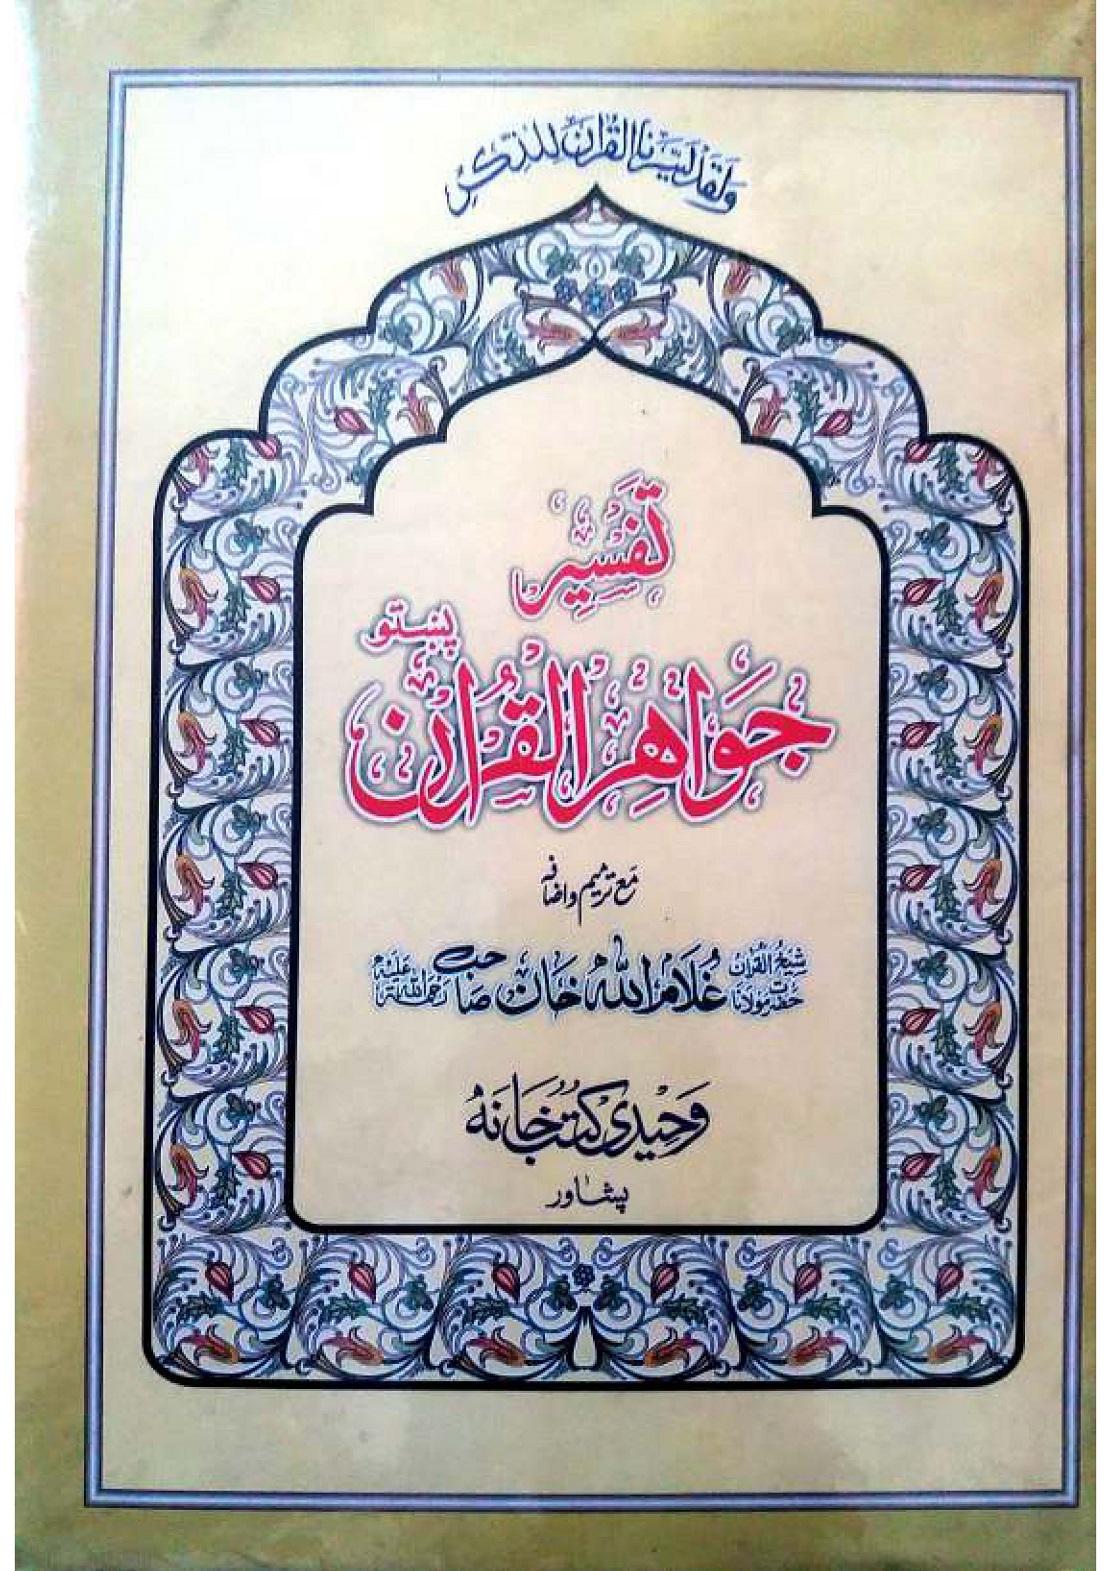 ولقد يسرنا القرآن للذكر
تفسیر
پښتو
جواهر القرآن
مع ترمیم واضافه
شیخ القرآن حضرت مولانا غلام الله خان صاحب رحمة الله علیه
وحیدی کتب خانه
پشاور